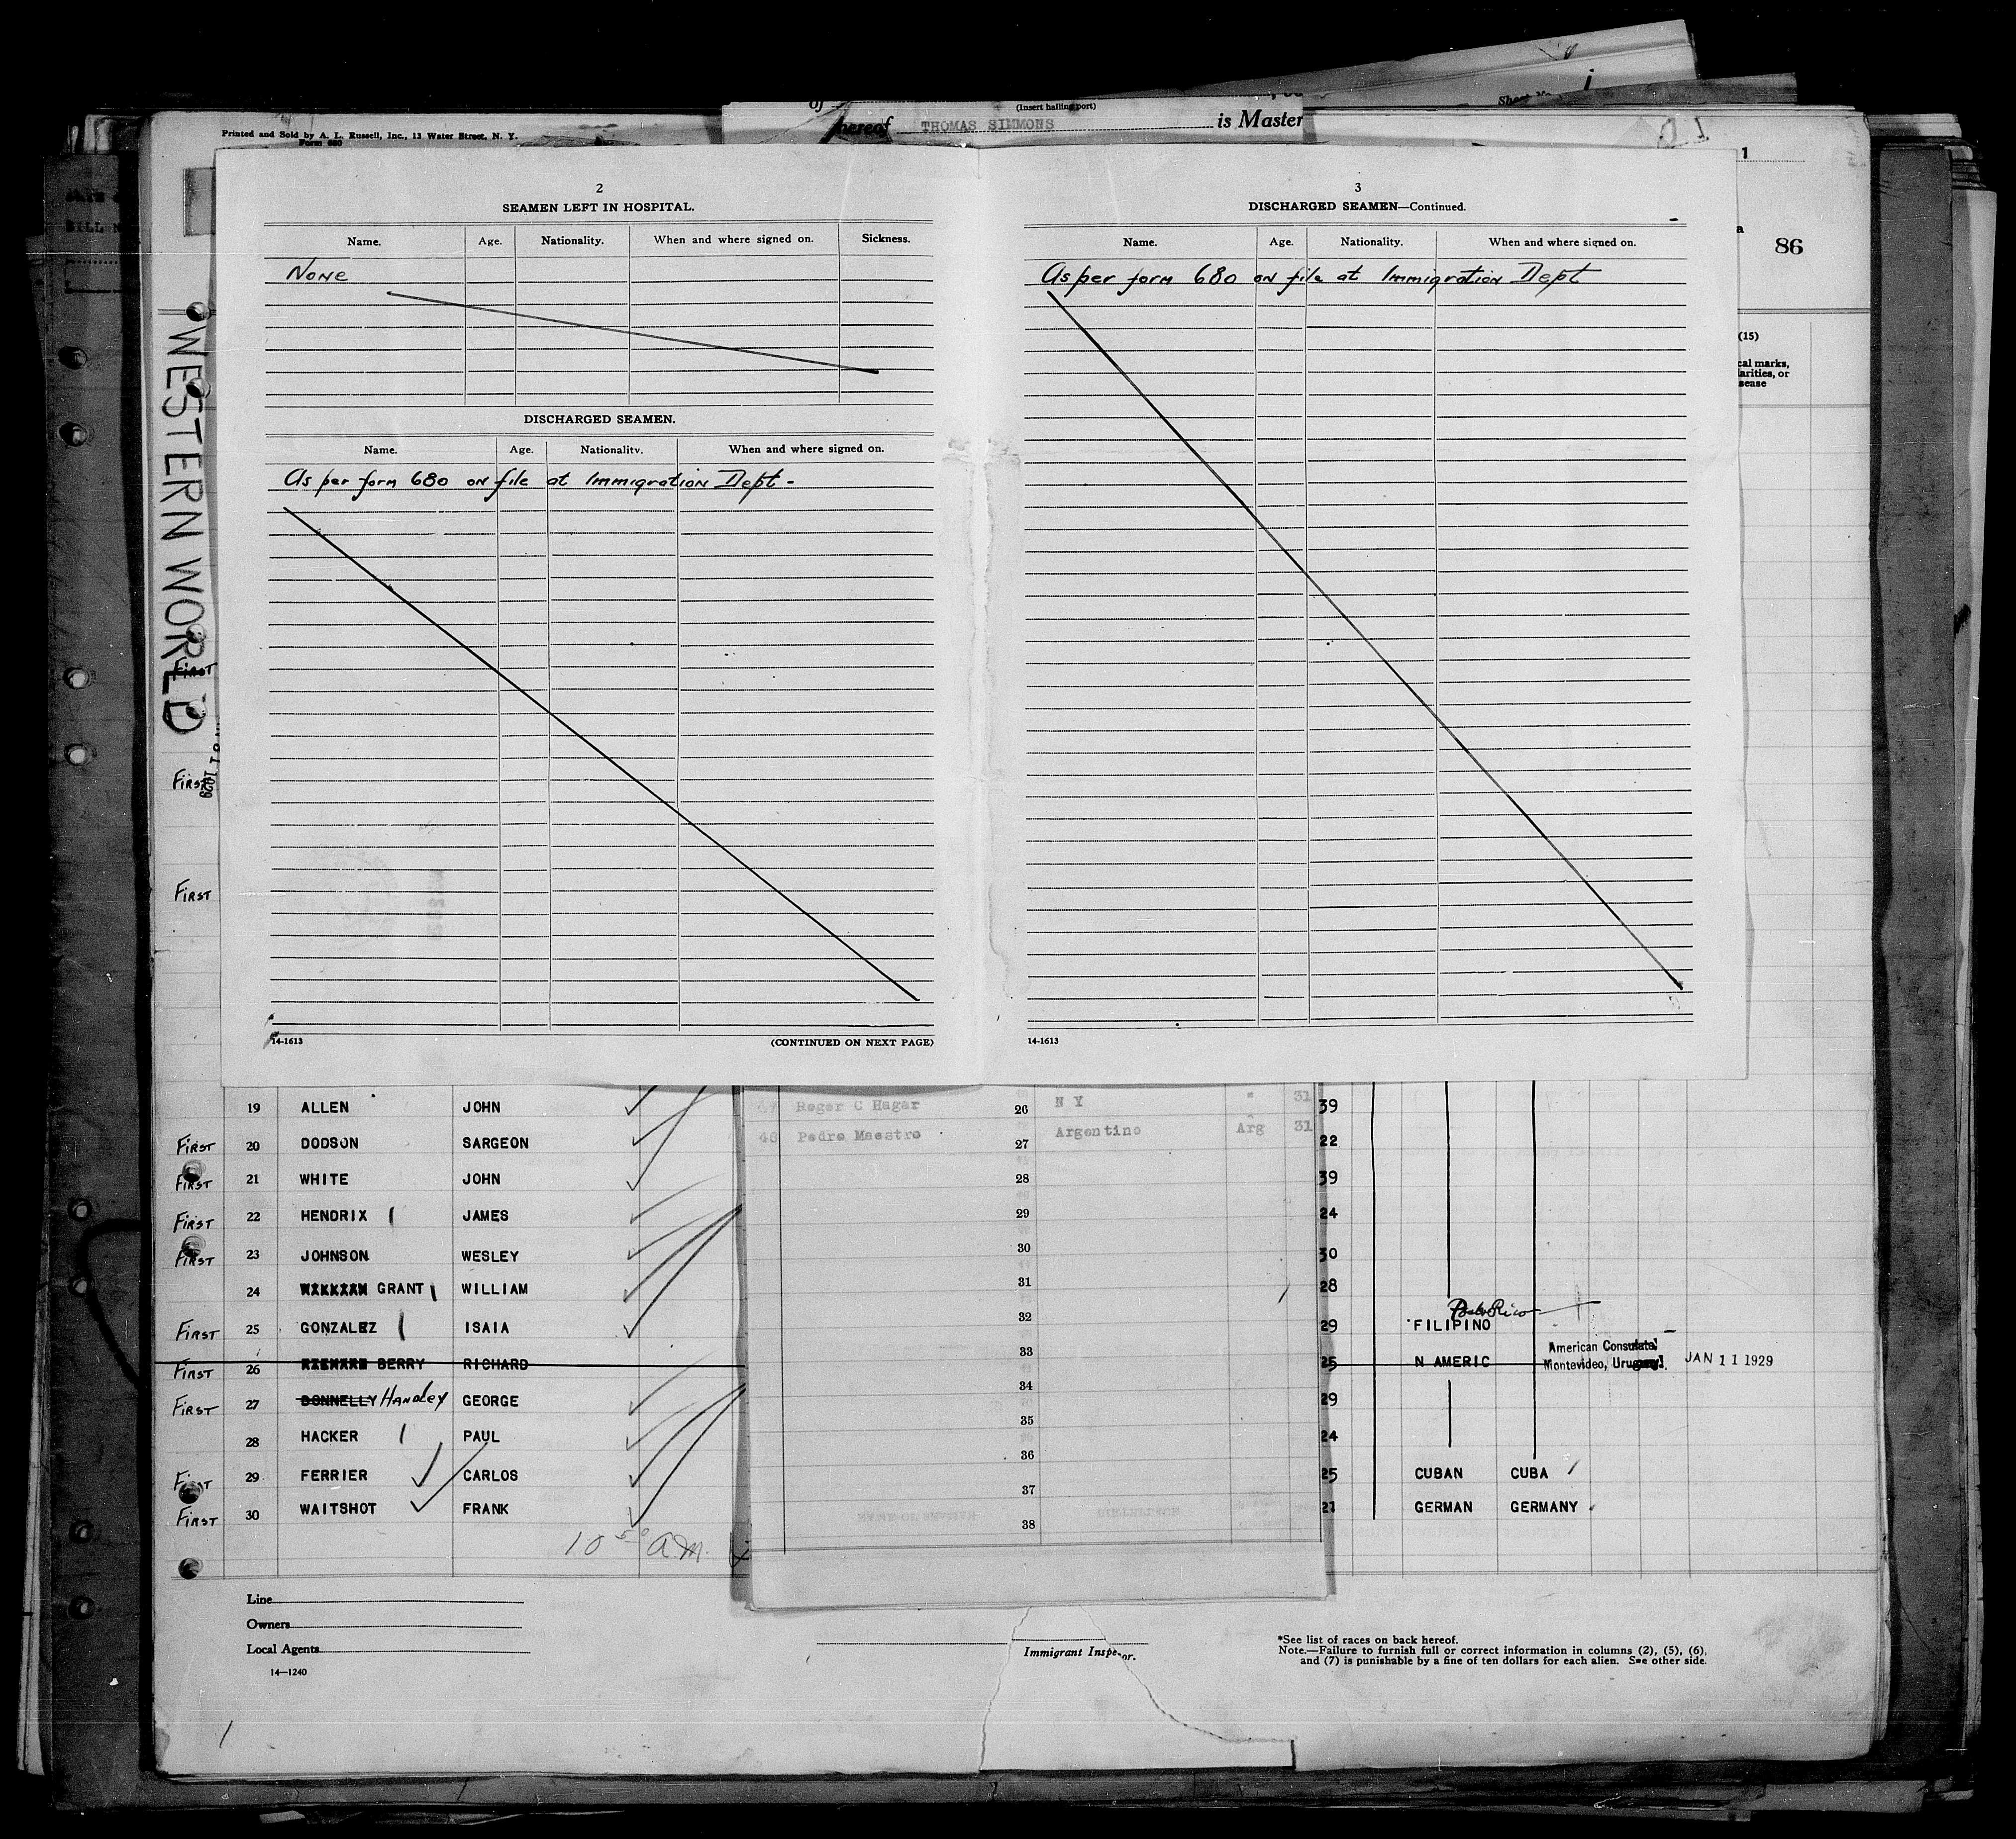 of
(Insert hailing port)
hereof THOMAS SIMMONS is Master
Printed and Sold by A. L. Russell, Inc., 13 Water Street, N. Y.
Form 680
1
86
WESTERN WORLD
2
SEAMEN LEFT IN HOSPITAL.
Name. Age. Nationality. When and where signed on. Sickness.
None
DISCHARGED SEAMEN.
Name. Age. Nationality. When and where signed on.
As per form 680 on file at Immigration Dept -
14-1613 (CONTINUED ON NEXT PAGE)
3
DISCHARGED SEAMEN—Continued.
Name. Age. Nationality. When and where signed on.
As per form 680 on file at Immigration Dept
14-1613
(15)
cal marks,
larities, or
sease
First
First
First
19 ALLEN JOHN 39
First 20 DODSON SARGEON 22
First 21 WHITE JOHN 39
First 22 HENDRIX JAMES 24
First 23 JOHNSON WESLEY 30
24 GRANT WILLIAM 28
Porto Rico
First 25 GONZALEZ ISAIA 29 FILIPINO
First 26 BERRY RICHARD 25 N AMERIC American Consulate Montevideo, Uruguay. JAN 11 1929
First 27 DONNELLY Handley GEORGE 29
28 HACKER PAUL 24
First 29 FERRIER CARLOS 25 CUBAN CUBA
First 30 WAITSHOT FRANK 21 GERMAN GERMANY
10 50 am.
47 Roger C Hagar 26 N Y " 31
48 Pedro Maestro 27 Argentino Arg 31
28
29
30
31
32
33
34
35
36
37
38
Line
Owners
Local Agents
14—1240
Immigrant Inspector.
*See list of races on back hereof.
Note.—Failure to furnish full or correct information in columns (2), (5), (6),
and (7) is punishable by a fine of ten dollars for each alien. See other side.